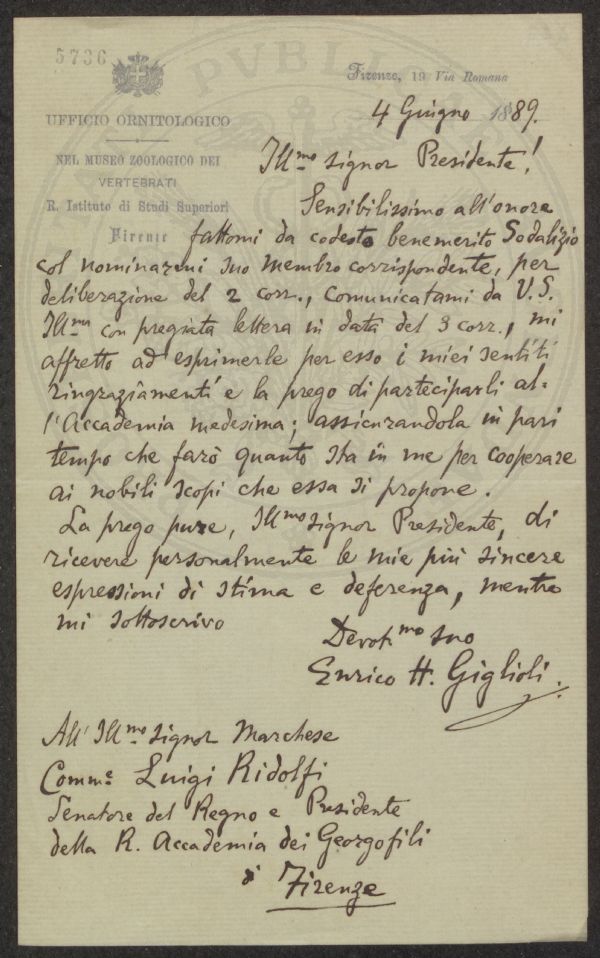 5736
Firenze, 19 Via Romana
4 Giugno 1889.
UFFICIO ORNITOLOGICO
NEL MUSEO ZOOLOGICO DEI
VERTEBRATI
R. Istituto di Studi Superiori
Firenze
PVBLICAE
Illmo signor Presidente!
Sensibilissimo all'onore
fattomi da codesto benemerito Sodalizio
col nominarmi suo membro corrispondente, per
deliberazione del 2 corr., comunicatami da V.S.
Illma con pregiata lettera in data del 3 corr., mi
affretto ad esprimerle per esso i miei sentiti
ringraziamenti e la prego di parteciparli al-
l'Accademia medesima; assicurandola in pari
tempo che farò quanto sta in me per cooperare
ai nobili scopi che essa si propone.
La prego pure, Illmo signor Presidente, di
ricevere personalmente le mie più sincere
espressioni di stima e deferenza, mentre
mi sottoscrivo
Devotmo suo
Enrico H. Giglioli.
All' Illmo signor Marchese
Comme Luigi Ridolfi
Senatore del Regno e Presidente
della R. Accademia dei Georgofili
di Firenze